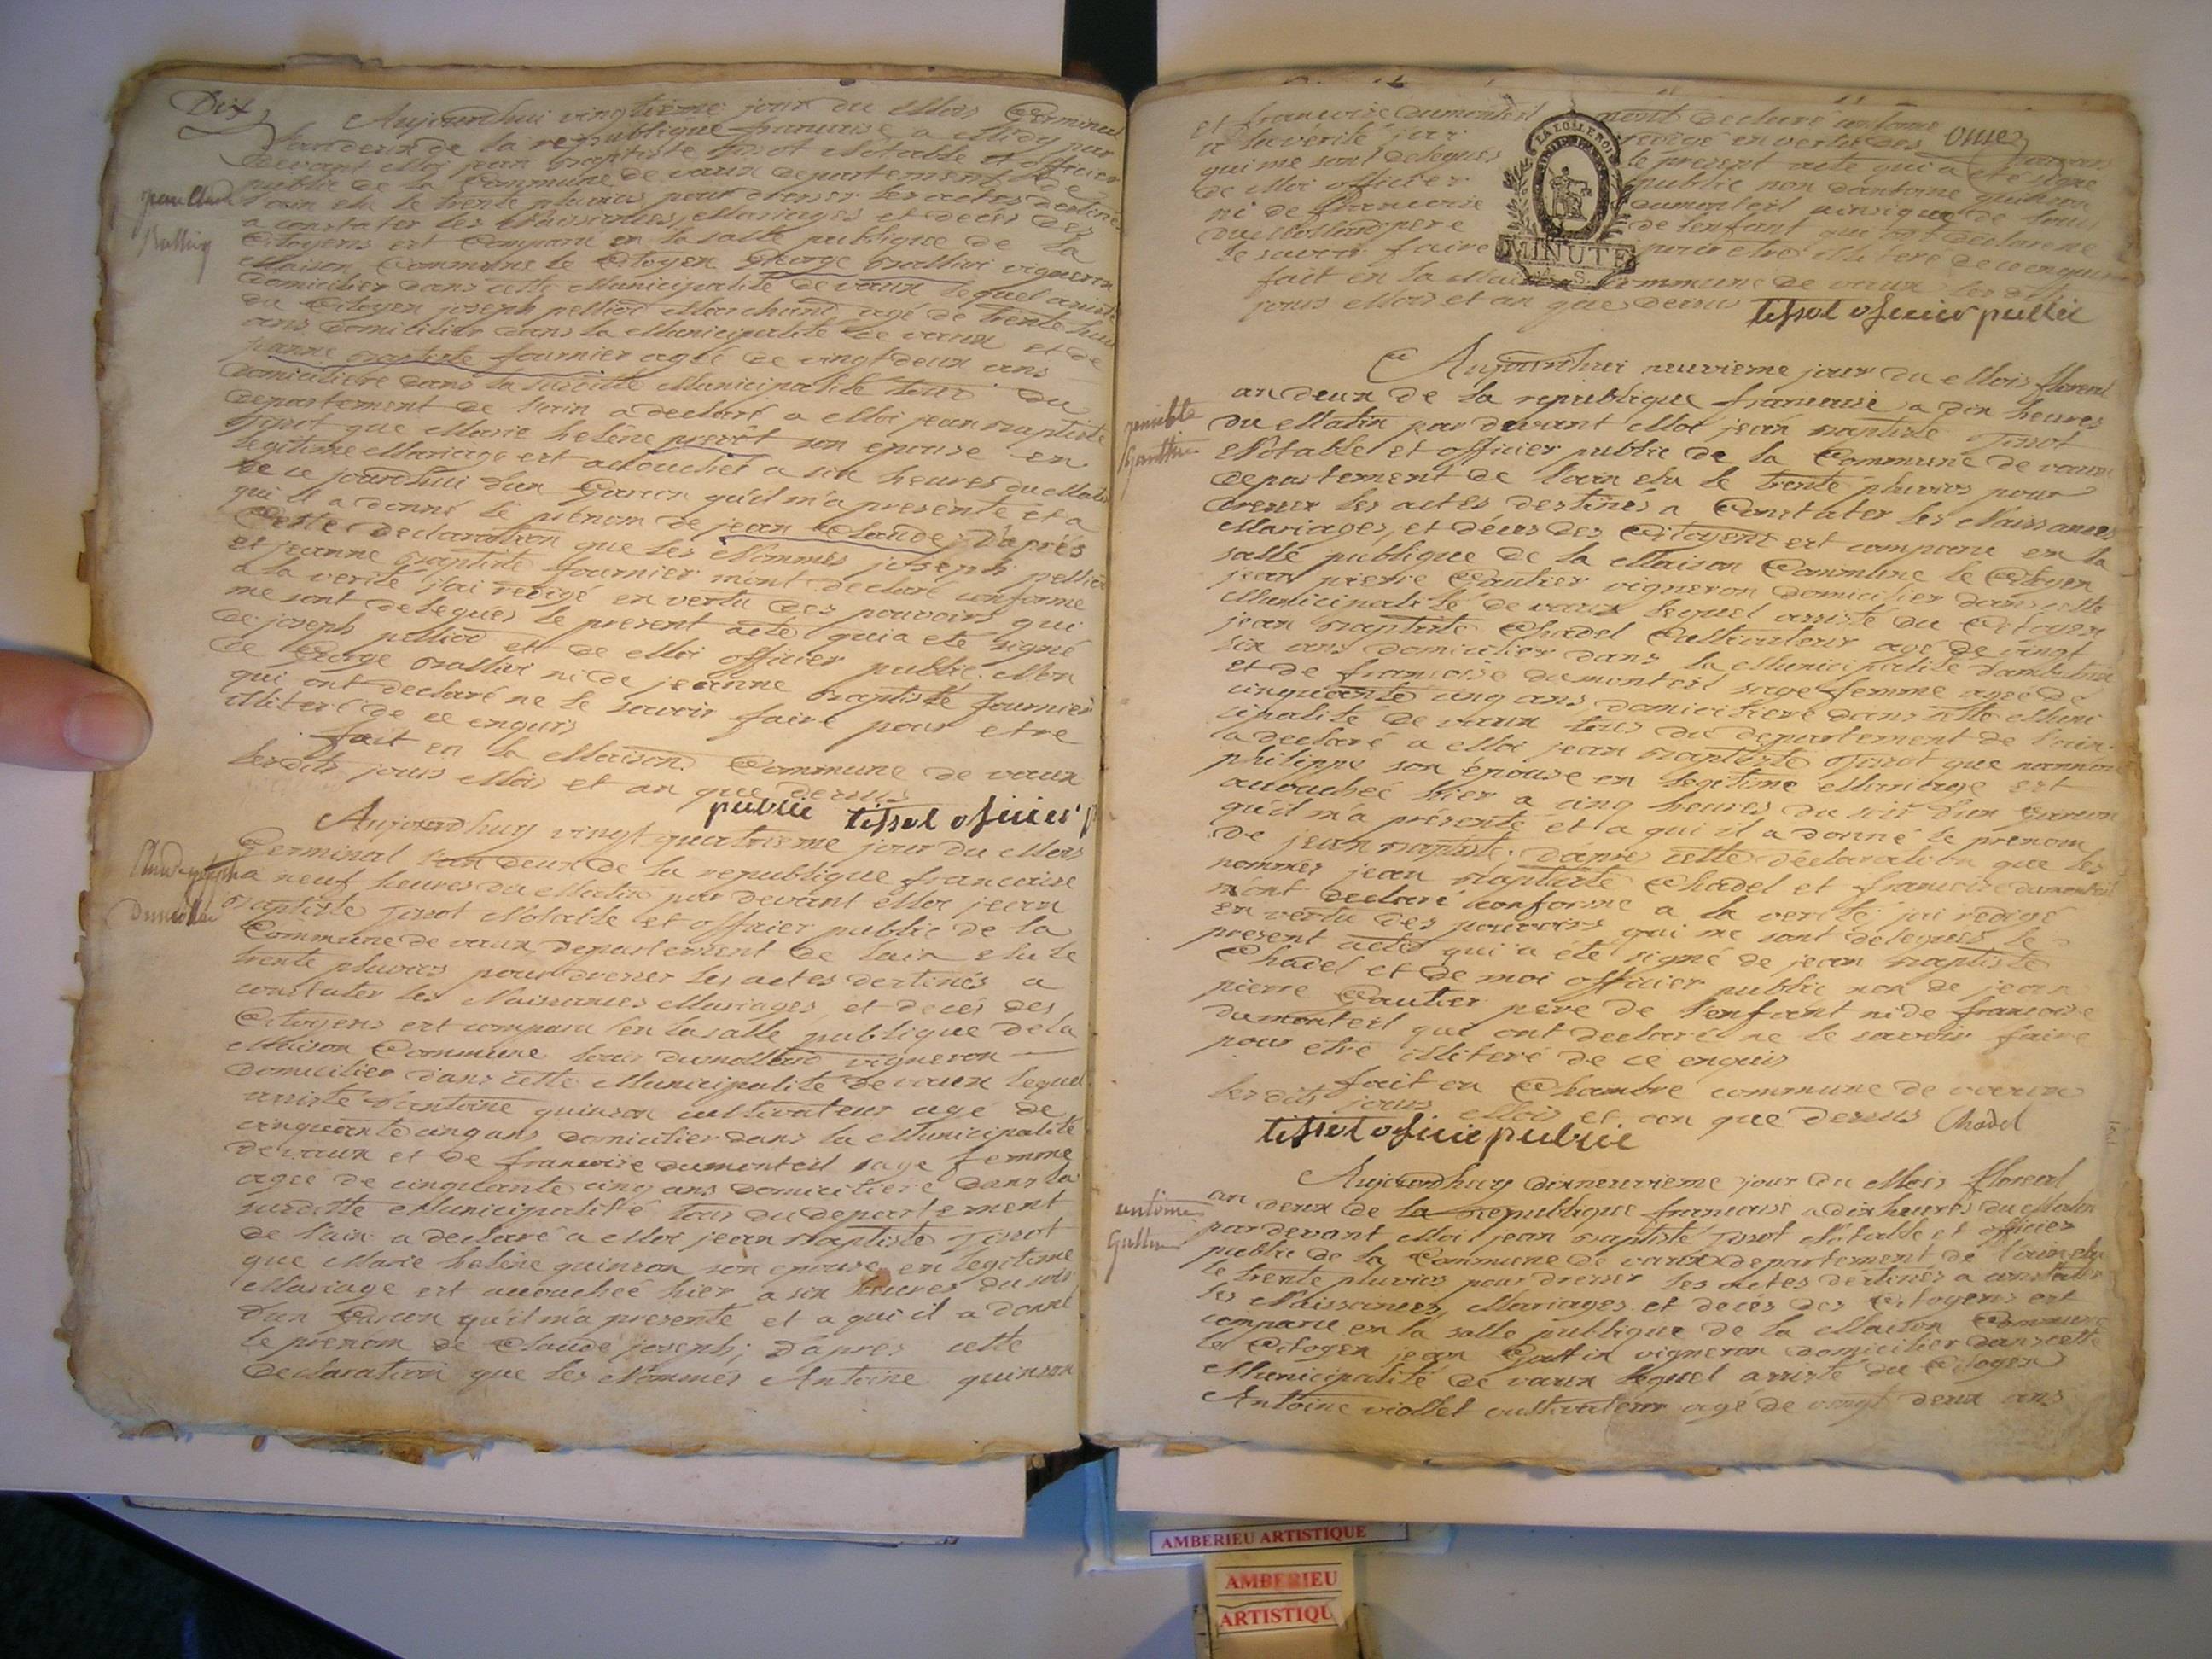 Dix
Aujourdhui vingtieme jour du Mois Germinal
lan deux de la republique francaise a Midy par
devant Moi jean Baptiste Tissot Notable et officier
public de la Commune de vaux departement de
l'ain elu le trente pluvios pour dresser les actes destinés
a constater les Naissances, Mariages et décès des
Citoyens est Comparu en la salle publique de la
Maison Commune le Citoyen George Ballivi vigneron
domicilier dans cette Municipalité de vaux lequel assisté
du Citoyen joseph pelliod Marchand agé de trente huit
ans domicilier dans la Municipalité de vaux et de
jeanne Baptiste fournier agée de vingt deux ans
domiciliere dans la susditte Municipalité tous du
departement de l'ain a declaré a Moi jean Baptiste
Tissot que Marie heléne prevôt son epouse en
legitime Mariage est accouchée a six heures du Matin
de ce jourdhui d'un Garcon qu'il m'a presenté et a
qui il a donné le prénom de jean Claude; D'aprés
Cette declaration que les Nommés joseph pelliod
et jeanne Baptiste fournier mont declaré conforme
a la verité j'ai redigé en vertu des pouvoirs qui
me sont delegués le present acte qui a eté signé
de joseph pelliod et de Moi officier public. Non
de George Ballivi ni de jeanne Baptiste fournier
qui ont declaré ne le savoir faire pour etre
illiteré de ce enquis
fait en la Maison Commune de vaux
lesdits jours Mois et an que dessus
public tissot oficier
jean Claude
Aujourdhuy vingt quatrieme jour du Mois
Germinal lan deux de la republique francaise
a neuf heures du Matin par devant Moi jean
Baptiste Tissot Notable et officier public de la
Commune de vaux departement de lain elu le
trente pluvios pour dresser les actes destinés a
constater les Naissances Mariages, et decés des
Citoyens est comparu en la salle publique de la
Maison Commune louis dumollard vigneron
domicilier dans cette Municipalité de vaux lequel
assisté d'antoine quinson cultivateur agé de
cinquante cinq ans domicilier dans la Municipalité
de vaux et de francoise dumonteil sage femme
agée de cinquante cinq ans domiciliere dans la
susditte Municipalité tous du departement
de l'ain a declaré a Moi jean Baptiste Tissot
que Marie heléne quinson son epouse en legitime
Mariage est accouchée hier a six heures du soir
d'un Garcon qu'il m'a presenté et a qui il a donné
le prenom de Claude joseph; d'aprés cette
declaration que les Nommés Antoine quinson
Claude joseph
onze
et francoise dumonteil mont declaré
a la verité jai redigé en vertu des
qui me sont delegués le present acte qui a eté signé
de Moi officier public non d'antoine quinson
ni de francoise dumonteil ainsi que de louis
dumollard pere de l'enfant qui ont declaré ne
le savoir faire pour etre illiteré de ce enquis
LA LOI LE ROI
MINUTE
fait en la Maison Commune de vaux lesdits
jours Mois et an que dessus tissot oficier public
Aujourdhui neuvieme jour du Mois floreal
an deux de la republique francaise a dix heures
du Matin par devant Moi jean Baptiste Tissot
Notable et officier public de la Commune de vaux
departement de l'ain elu le trente pluvios pour
dresser les actes destinés a Constater les Naissances
Mariages, et décés des Citoyens est comparu en la
salle publique de la Maison Commune le Citoyen
jean pierre Gautier vigneron domicilier dans cette
Municipalité de vaux lequel assisté du Citoyen
jean Baptiste Chadel Cultivateur agé de vingt
six ans domicilier dans la Municipalité
et de francoise dumonteil sage femme agée de
cinquante cinq ans domiciliere dans cette Muni
cipalité de vaux tous du departement de l'ain
a declaré a Moi jean Baptiste Tissot que
philippe son épouse en legitime Mariage est
accouchée hier a cinq heures du soir d'un Garcon
qu'il m'a présenté et a qui il a donné le prenom
de jean Baptiste. D'aprés cette déclaration que les
nommés jean Baptiste Chadel et francoise dumonteil
mont declaré conforme a la verité jai redigé
en vertu des pouvoirs qui me sont delegués le
present acte qui a été signé de jean Baptiste
Chadel et de moi officier public non de jean
pierre Gautier pere de l'enfant ni de francoise
dumonteil qui ont declaré ne le savoir faire
pour etre illiteré de ce enquis
fait en Chambre commune de vaux
lesdits jours Mois et an que dessus Chadel
tissot oficie public
Aujourdhuy dixneuvieme jour du Mois floreal
an deux de la republique francaise a dix heures du Matin
par devant Moi jean Baptiste Tissot Notable et officier
public de la Commune de vaux departement de l'ain elu
le trente pluvios pour dresser les actes destinés a constater
les Naissances, Mariages et decés des Citoyens est
comparu en la salle publique de la Maison Commune
le Citoyen jean vigneron domicilier dans cette
Municipalité de vaux lequel assisté du Citoyen
Antoine viollet cultivateur agé de vingt deux ans
antoine
AMBERIEU ARTISTIQUE
AMBERIEU
ARTISTIQU